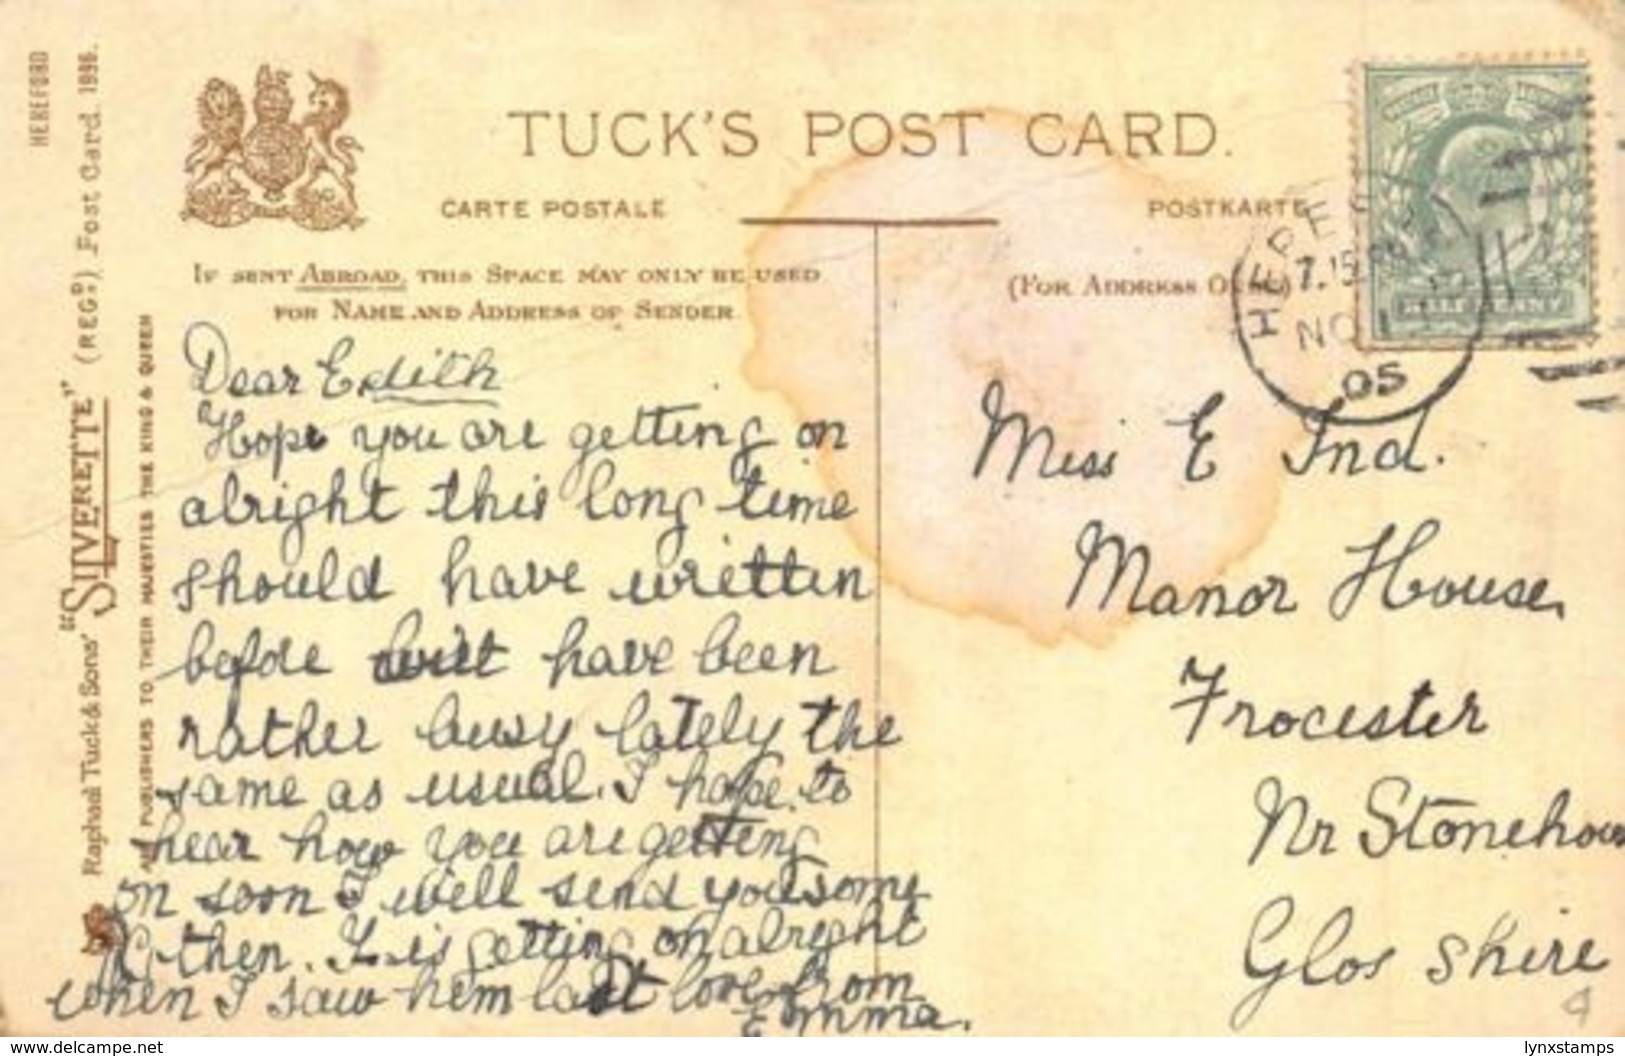 HEREFORD
Raphael Tuck & Sons' "SILVERETTE" (REGD) Post Card. 1996.
PUBLISHERS TO THEIR MAJESTIES THE KING & QUEEN
TUCK'S POST CARD.
CARTE POSTALE
POSTKARTE
IF SENT ABROAD, THIS SPACE MAY ONLY BE USED
FOR NAME AND ADDRESS OF SENDER
(FOR ADDRESS
HEREFORD
7.15
NO 1
05
Dear Edith
Hope you are getting on
alright this long time
should have written
before have been
rather busy lately the
same as usual. I hope to
hear how you are getting
on soon I will send you some
then. is getting on alright
when I saw him last love from
Emma.
Miss E Ind.
Manor House,
Frocester
Nr Stonehous
Glos shire
www.delcampe.net
lynxstamps